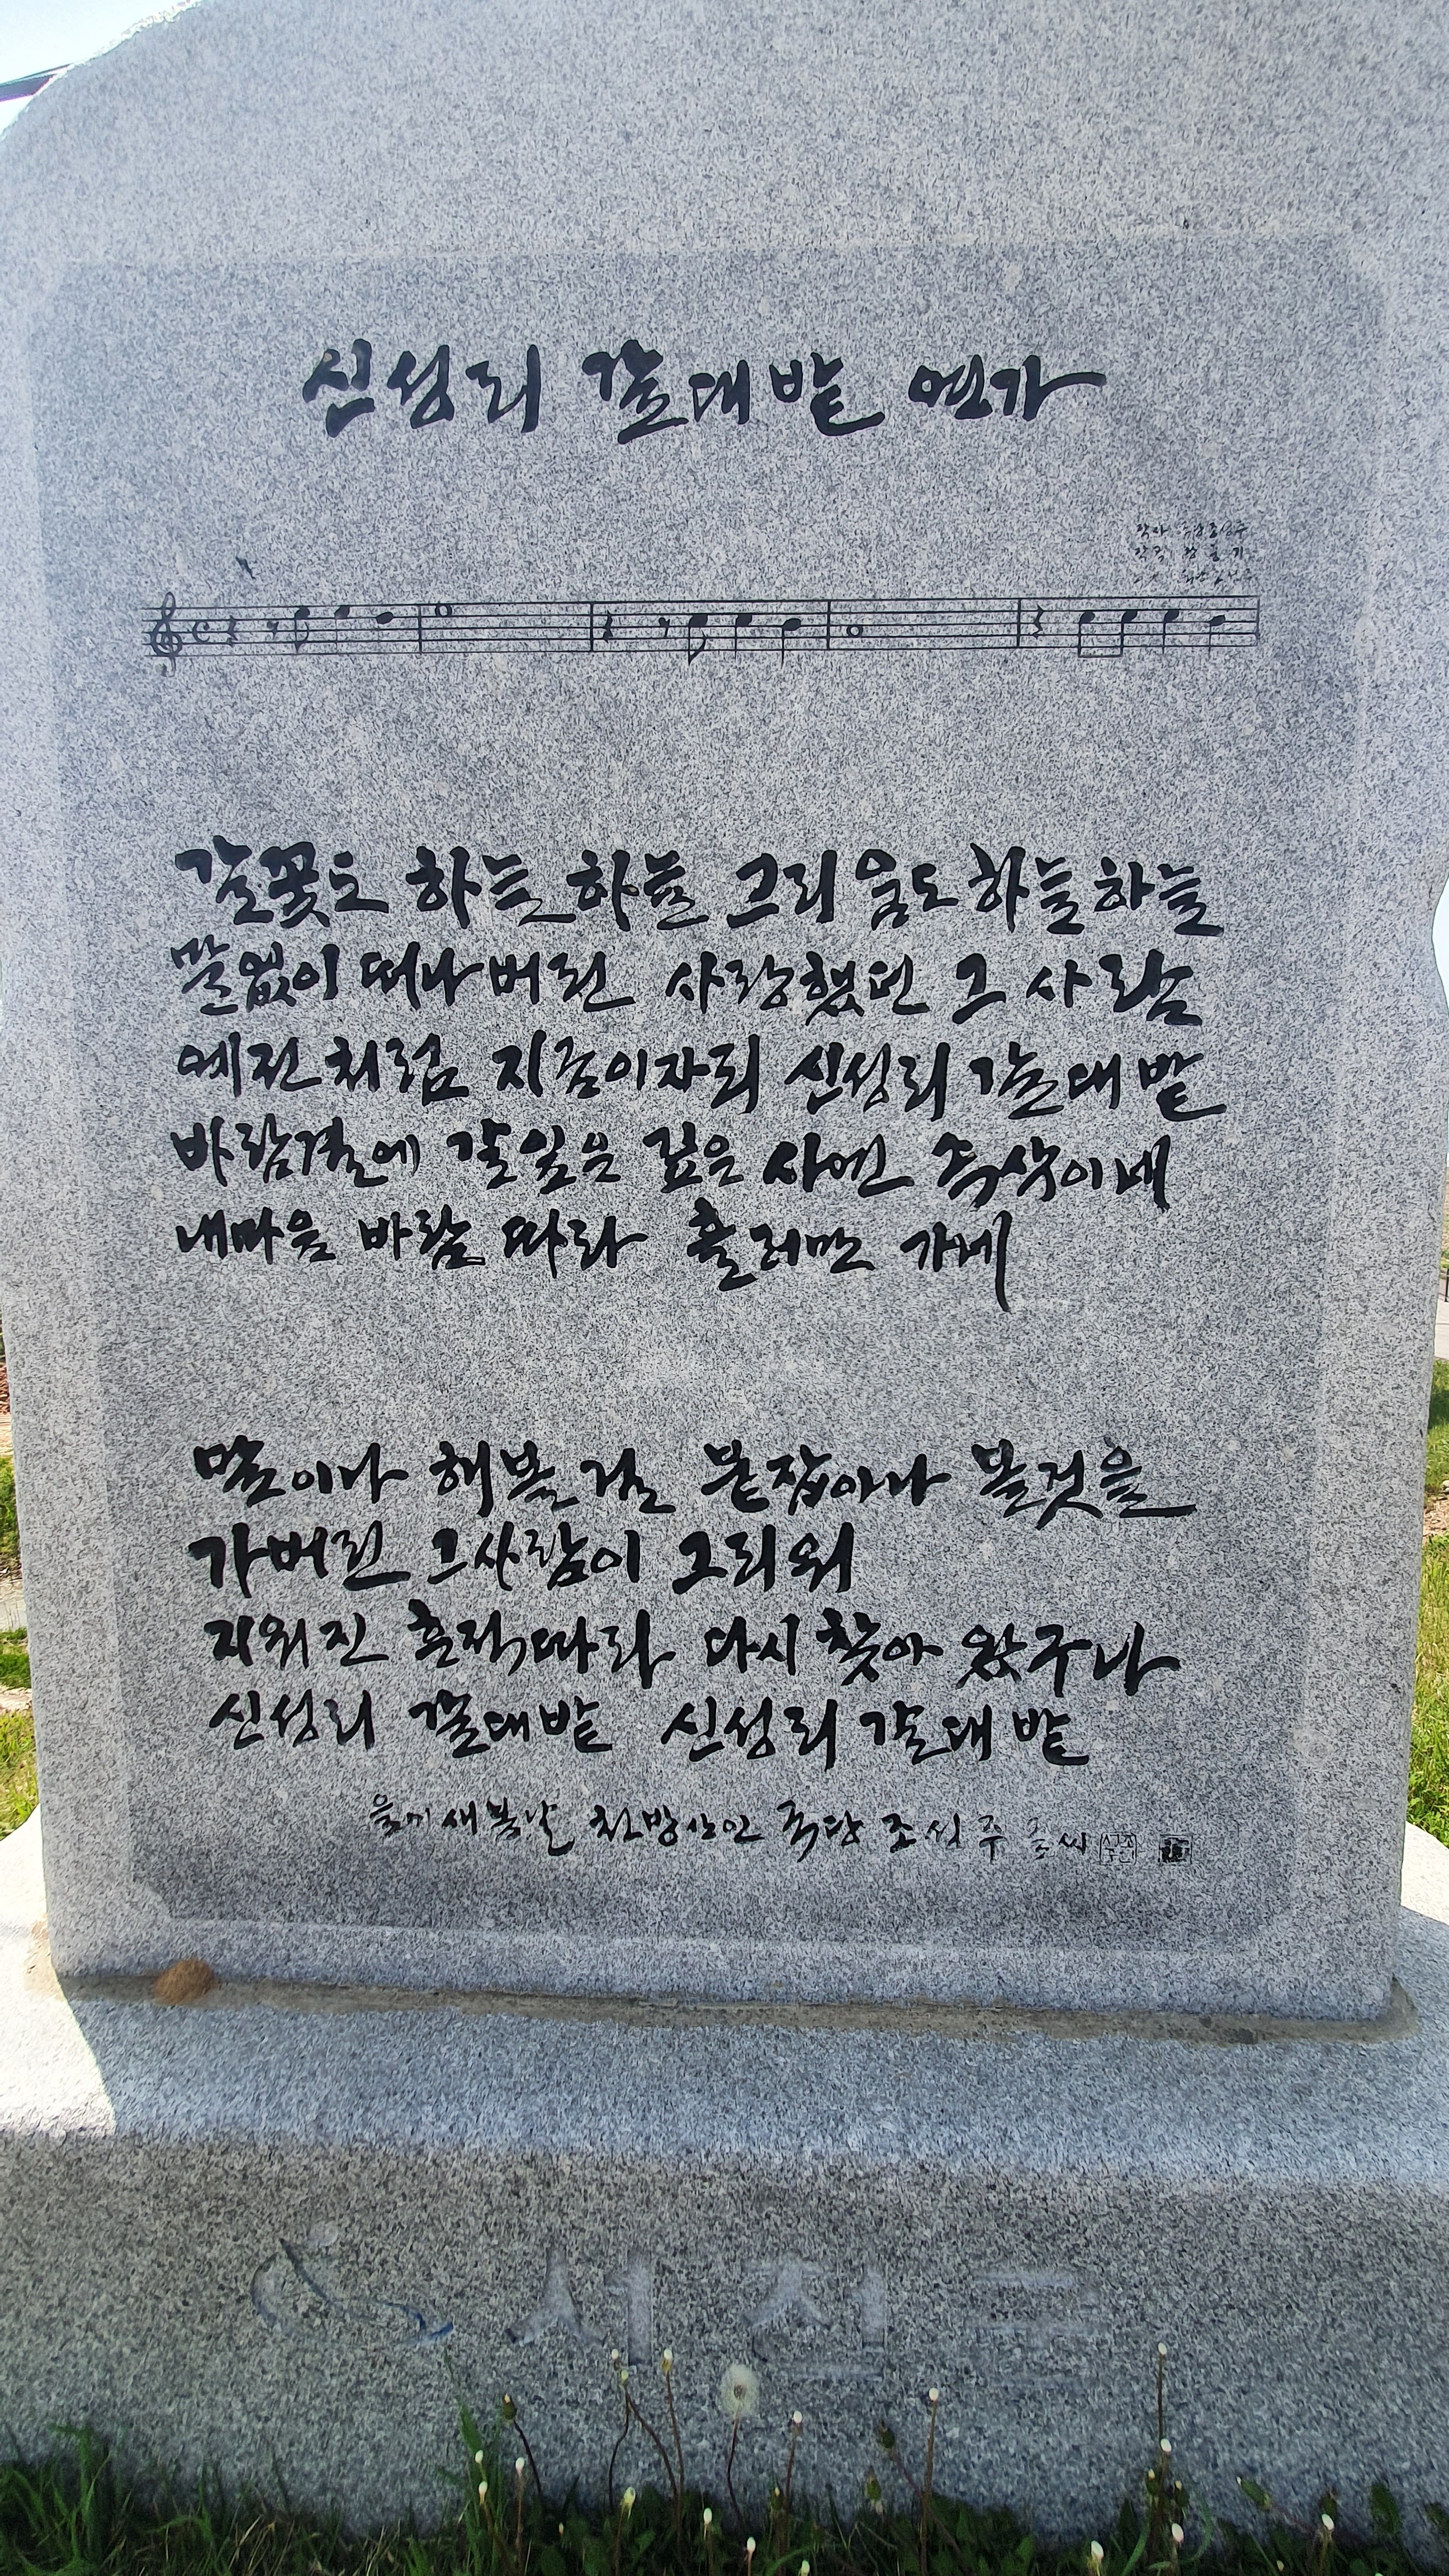 신성리 갈대밭 연가
작사
작곡
갈꽃도 하늘하늘 그리움도 하늘하늘
말없이 떠나버린 사랑했던 그 사람
예전처럼 지금이자리 신성리 갈대밭
바람결에 갈잎은 깊은 사연 속삭이네
내마음 바람 따라 흘러만 가네
말이나 해볼걸 붙잡아나 볼것을
가버린 그사람이 그리워
지워진 흔적따라 다시 찾아 왔구나
신성리 갈대밭 신성리 갈대밭
새봄날 천방산인 국당 조성주
서천군